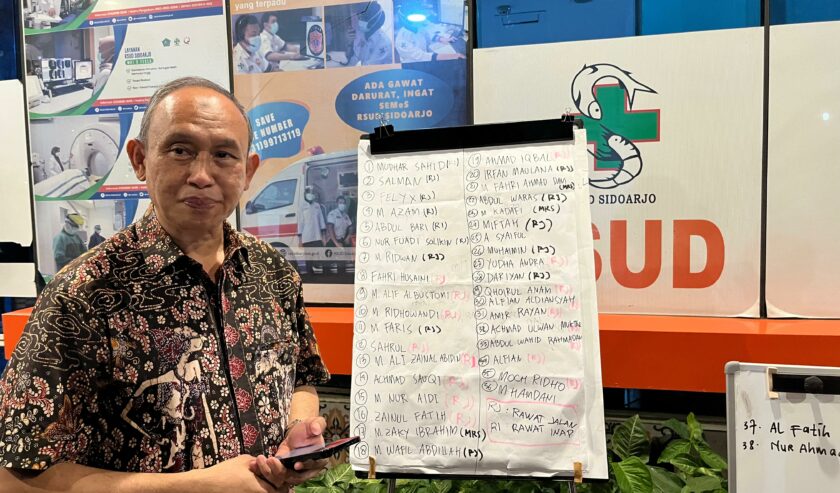 yang terpadu
LAYANAN
RSUD SIDOARJO
SAVE
NUMBER
1)99713119
ADA GAWAT
DARURAT, INGAT
SEMeS
RSUD SIDOARJO
SIDOARJO
SUD
1 MUDHAR SAHIDI
2 SALMAN (RJ)
3 FELYX (RJ)
4 M AZAM (RJ)
5 ABDUL BARI (RI)
6 NUR FUADI SOLIKIN (RJ)
7 M RIDWAN (RJ)
8 FAHRI HUSAINI (RJ)
9 M. ALIF ALBUSTOMI (RJ)
10 M RIDHOWANDI (RJ)
11 M FARIS (RJ)
12 SAHRUL (RJ)
13 M. ALI ZAINAL ABIDIN (RJ)
14 ACHMAD SAUQI (RJ)
15 M NUR AIDI (RJ)
16 ZAINUL FATIH (RJ)
17 M ZAKY IBRAHIM (MRS)
18 M WAFIL ABDILLAH (RJ)
19 AHMAD IQBAL (RJ)
20 IRFAN MAULANA (RJ)
M FAHRI AHMAD DANI (MRS)
ABDUL WARAS (RJ)
M KADAFI (MRS)
MIFTAH (RJ)
25 A. SYAIFUL
MUHAIMIN (RJ)
YUDHA ANDRA (RJ)
28 DARIYAN (RJ)
QHOIRUL ANAM (RJ)
30 ALFIAN ALDIANSYAH
31 AMIR RAYAN (RJ)
32 ACHMAD ULWAN
33 ABDUL WAHID RAHMADAN
34 ALFIAN (RJ)
35 MOCH RIDHO (RJ)
36 M HAMDANI
RJ : RAWAT JALAN
RI : RAWAT INAP
37. Al Fatih
38. Nur Ahmad